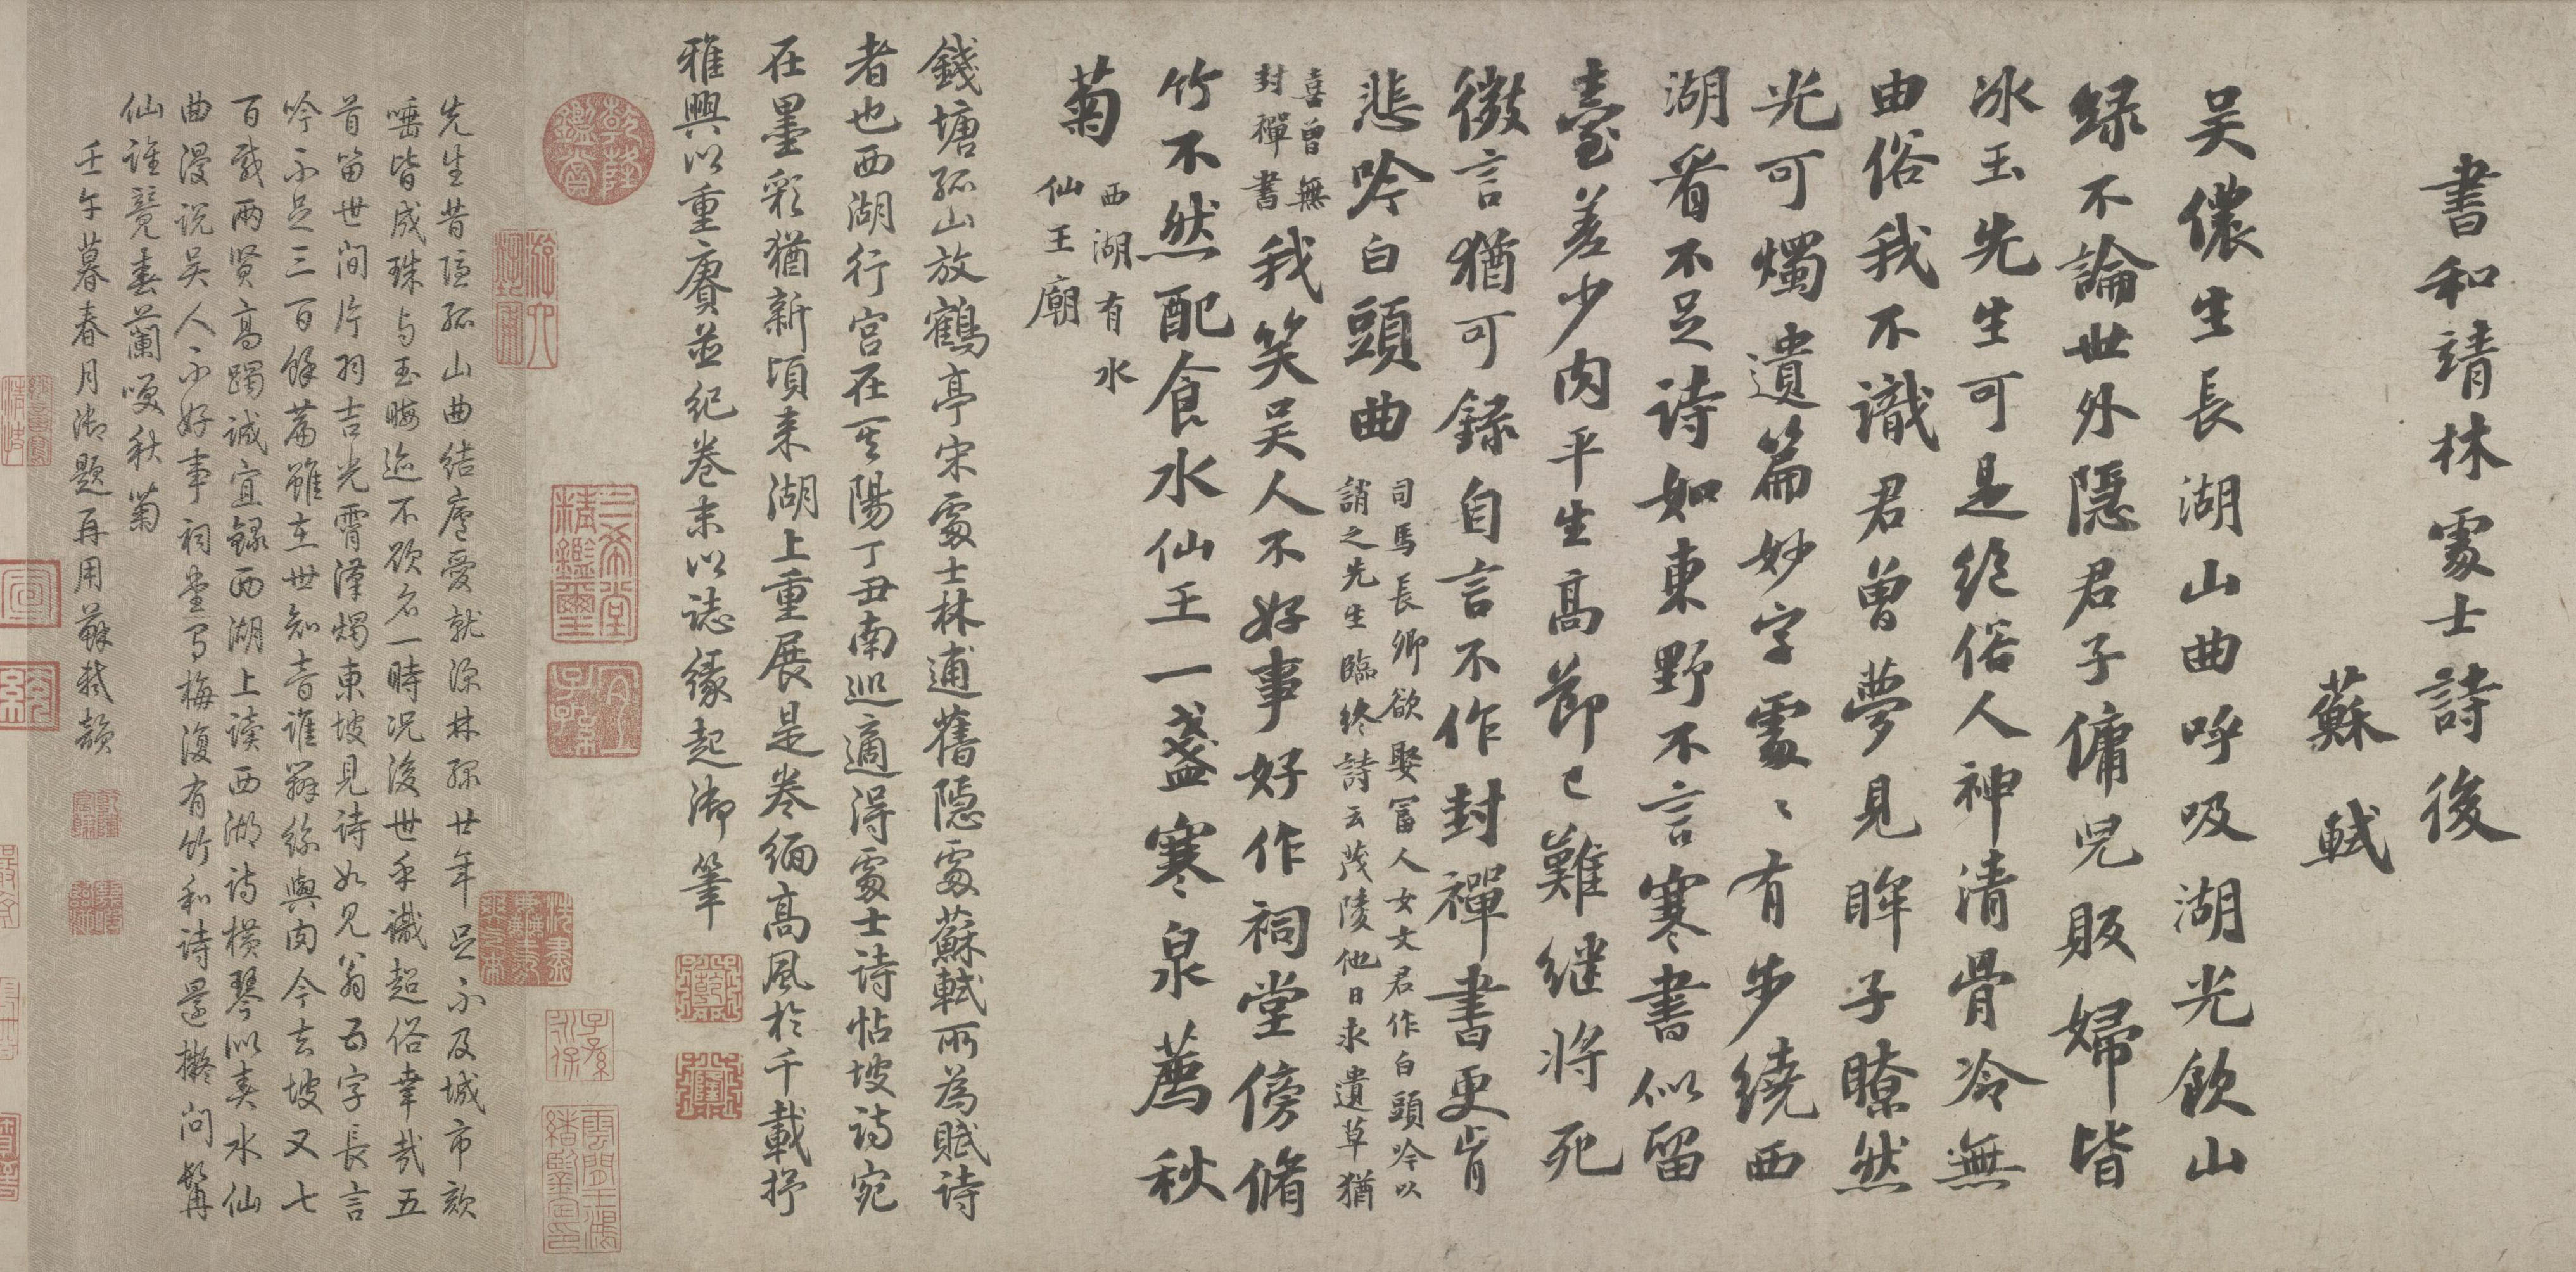 書和靖林處士詩後
蘇軾
吴儂生長湖山曲呼吸湖光飲山
緑不論世外隱君子傭兒販婦皆
冰玉先生可是絶俗人神清骨冷無
由俗我不識君曾夢見眸子瞭然
光可燭遺篇妙字處〻有步繞西
湖看不足詩如東野不言寒書似留
臺差少肉平生高節已難继將死
微言猶可録自言不作封禪書更肯
悲吟白頭曲
司馬長卿欲娶富人女文君作白頭吟以
誚之先生臨終詩云茂陵他日求遺草猶
喜曾無
封禪書
我笑吴人不好事好作祠堂傍脩
竹不然配食水仙王一盞寒泉薦秋
菊
西湖有水
仙王廟
錢塘孤山放鶴亭宋處士林逋舊隱處蘇軾所為賦詩
者也西湖行宫在其陽丁丑南巡適得處士詩帖坡詩宛
在墨彩猶新頃来湖上重展是卷緬高風於千載抒
雅興以重賡並紀卷末以誌緣起御筆
先生昔隱孤山曲結廬愛就深林緑廿年足不及城市欬
唾皆成珠与玉晦迹不欲名一時况後世乎識超俗幸哉五
首留世间片羽吉光霄漢燭東坡見诗如見翁五字長言
吟不足三百餘篇雖在世知音谁辨絲與肉今去坡又七
百載兩贤高躅诚宜録西湖上读西湖诗横琴以奏水仙
曲漫说吴人不好事祠堂写梅復有竹和诗還擬问髯
仙谁竟春蘭嗅秋菊
壬午暮春月御題再用蘇軾韻
乾隆鑑賞
三希堂精鑑璽
宜子孫